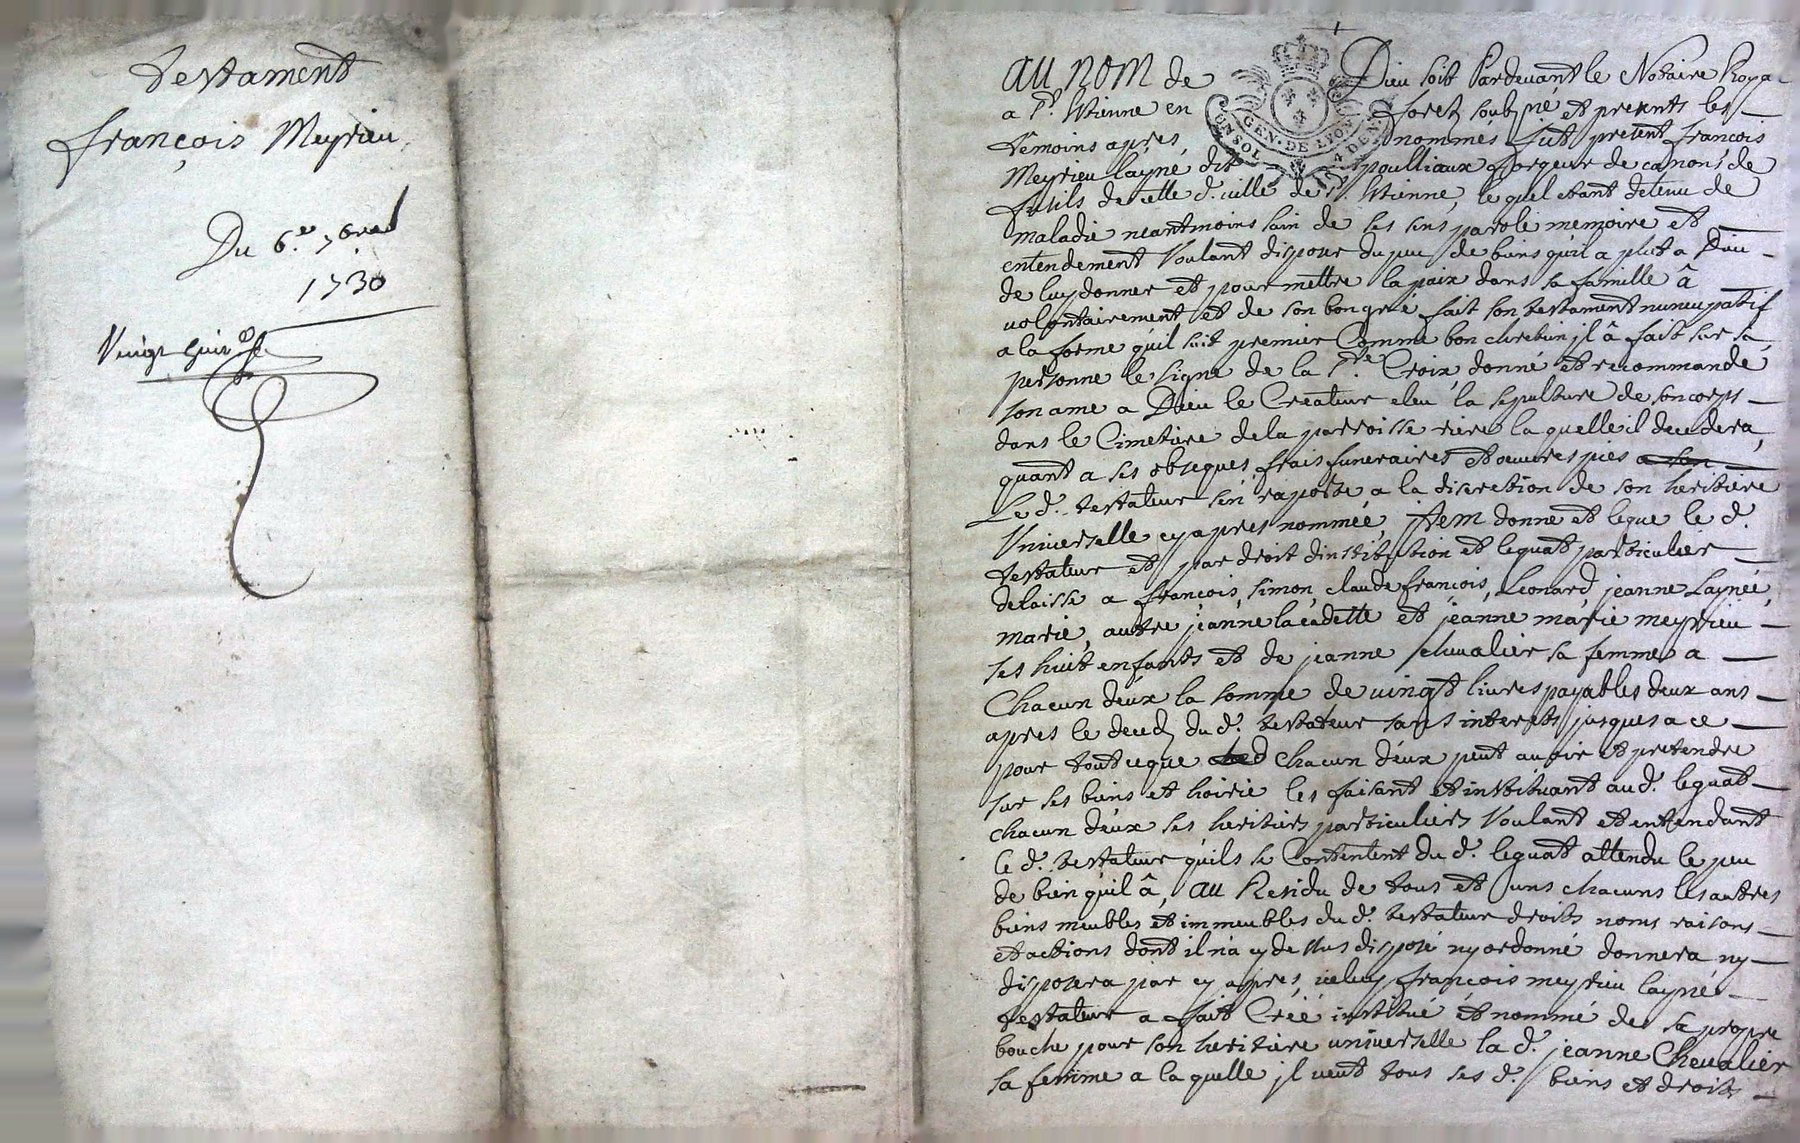 Testament
françois Meyrieu
Du 6.e 7bre
1730
Vingt huit
au nom de Dieu soit Pardevant le Notaire Roya
a St. Etienne en forez soubzné et presents les
temoins apres nommes fut present françois
Meyrieu layné dit poulliaux forgeur de canons de
fusils de cette d. ville de St. Etienne, le quel etant detenu de
maladie neantmoins sain de ses sens parole memoire et
entendement Voulant disposer du peu de biens qu'il a plut a Dieu
de luy donner et pour mettre la paix dans sa famille â
volontairement et de son bon gré fait son testament nuncupatif
a la forme qu'il suit premier Comme bon chretien jl â fait sur sa
personne le signe de la Ste. Croix donné et recommandé
son ame a Dieu le Createur eleu la sepulture de son corps
dans le Cimetiere de la parroisse riere la quelle il decedera,
quant a ses obseques frais funeraires et oeuvres pies
Le d. testateur s'en raporte a la discretion de son heritiere
Universelle cy apres nommée, Item donne et legue le d.
testateur et par droit d'institution et leguat particulier
delaisse a françois, simon, claude françois, Leonard, jeanne Laynée,
marie, autre jeanne la cadette et jeanne marie meyrieu
ses huit enfants et de jeanne chevalier sa femme a
Chacun d'eux la somme de vingt livres payables deux ans
apres le deced du d. testateur sans interets jusques a ce
pour tout ce que Chacun d'eux peut avoir et pretendre
sur ses biens et hoirie les faisant et instituant au d. leguat
chacun d'eux ses heritiers particuliers Voulant et entendant
le d. testateur qu'ils se Contentent du d. leguat attendu le peu
de bien qu'il â, au Residu de tous et uns chacuns les autres
biens meubles et immeubles du d. testateur droits noms raisons
et actions dont il n'a cy dessus disposé ny ordonné donnera ny
disposera par cy apres, iceluy françois meyrieu layné
testateur a fait Créé institué et nommé de sa propre
bouche pour son heritiere universelle la d. jeanne Chevalier
sa femme a la quelle jl veut tous ses d. biens et droits
GEN. DE LYON
UN SOL 4 DEN.